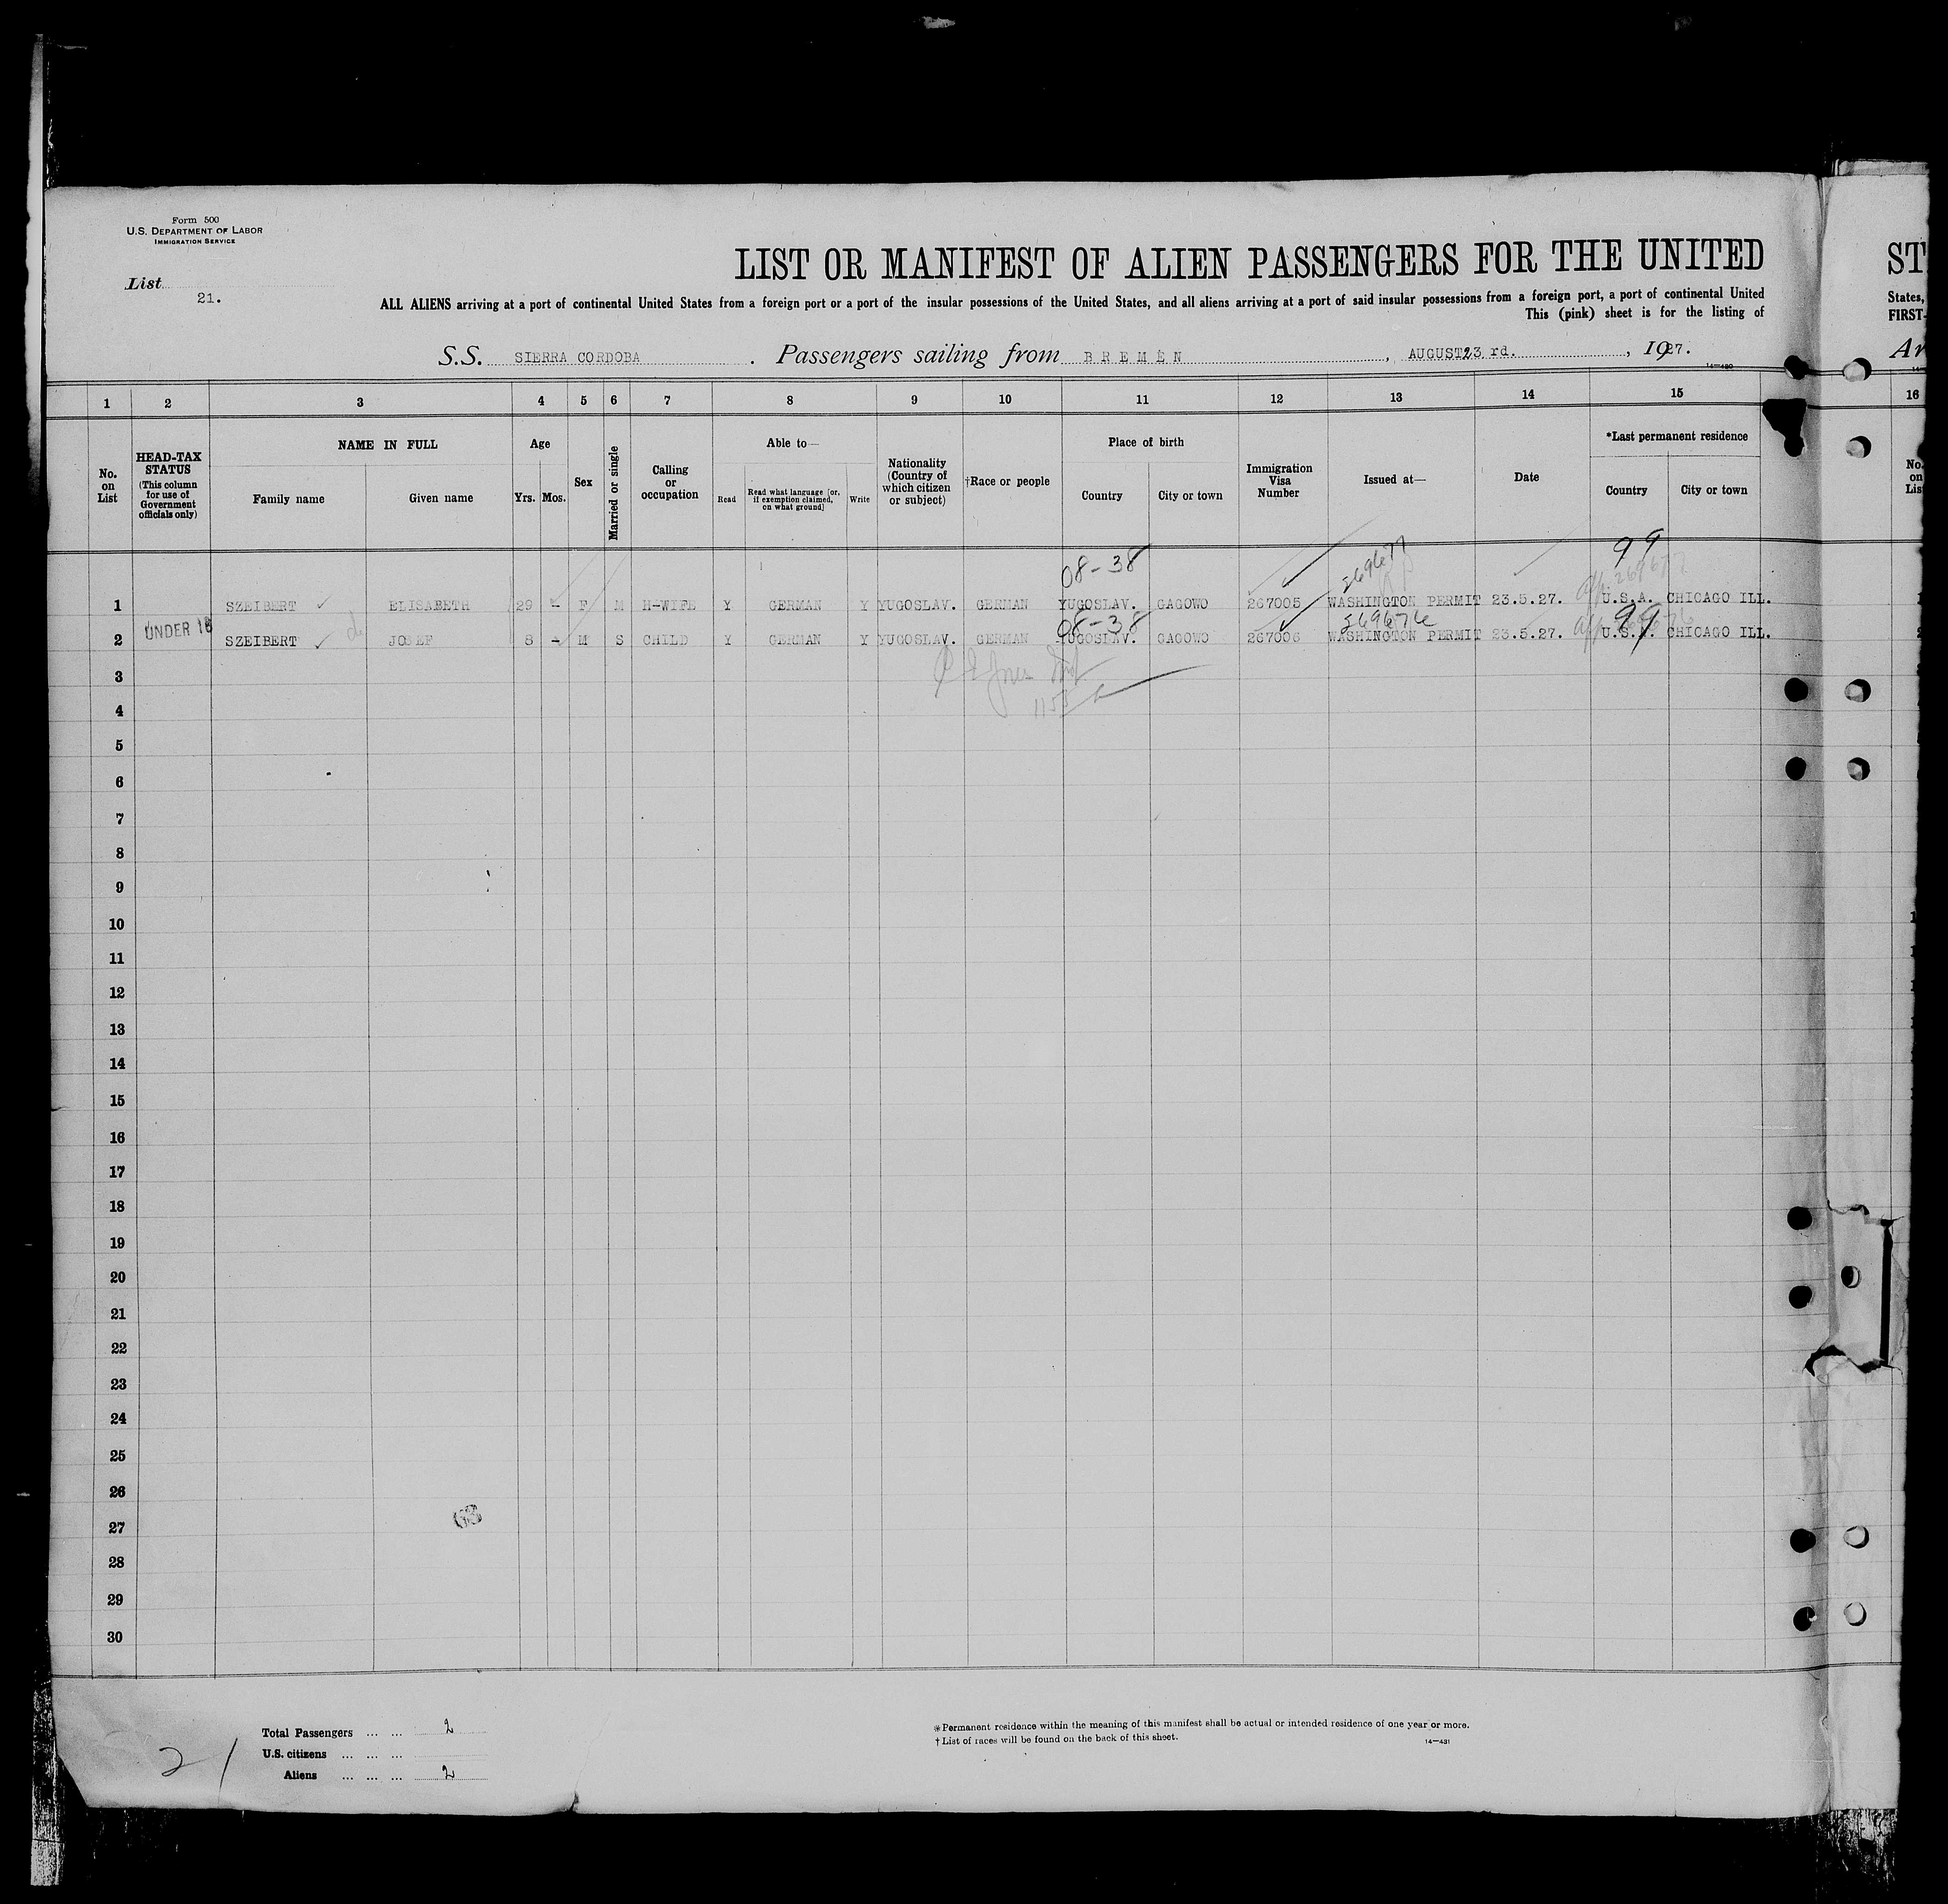 Form 500
U.S. DEPARTMENT OF LABOR
IMMIGRATION SERVICE
List 21.
LIST OR MANIFEST OF ALIEN PASSENGERS FOR THE UNITED
ALL ALIENS arriving at a port of continental United States from a foreign port or a port of the insular possessions of the United States, and all aliens arriving at a port of said insular possessions from a foreign port, a port of continental United
This (pink) sheet is for the listing of
S.S. SIERRA CORDOBA. Passengers sailing from BREMEN, AUGUST 23 rd., 1927.
ST
States,
FIRST-
Ar
1 2 3 4 5 6 7 8 9 10 11 12 13 14 15 16
No. on List
HEAD-TAX STATUS
(This column for use of Government officials only)
NAME IN FULL
Family name
Given name
Age
Yrs. Mos.
Sex
Married or single
Calling or occupation
Able to—
Read
Read what language [or, if exemption claimed, on what ground]
Write
Nationality (Country of which citizen or subject)
†Race or people
Place of birth
Country
City or town
Immigration Visa Number
Issued at—
Date
*Last permanent residence
Country
City or town
No. on List
08-38 269677 99
1 SZEIBERT ELISABETH 29 - F M H-WIFE Y GERMAN Y YUGOSLAV. GERMAN YUGOSLAV. GAGOWO 267005 WASHINGTON PERMIT 23.5.27. U.S.A. CHICAGO ILL.
UNDER 16 08-38 269676 99
2 SZEIBERT JOSEF 8 - M S CHILD Y GERMAN Y YUGOSLAV. GERMAN YUGOSLAV. GAGOWO 267006 WASHINGTON PERMIT 23.5.27. U.S.A. CHICAGO ILL.
3
4
5
6
7
8
9
10
11
12
13
14
15
16
17
18
19
20
21
22
23
24
25
26
27
28
29
30
63
Total Passengers ... ... 2
U.S. citizens ... ... ...
Aliens ... ... ... 2
21
*Permanent residence within the meaning of this manifest shall be actual or intended residence of one year or more.
†List of races will be found on the back of this sheet.
14—431